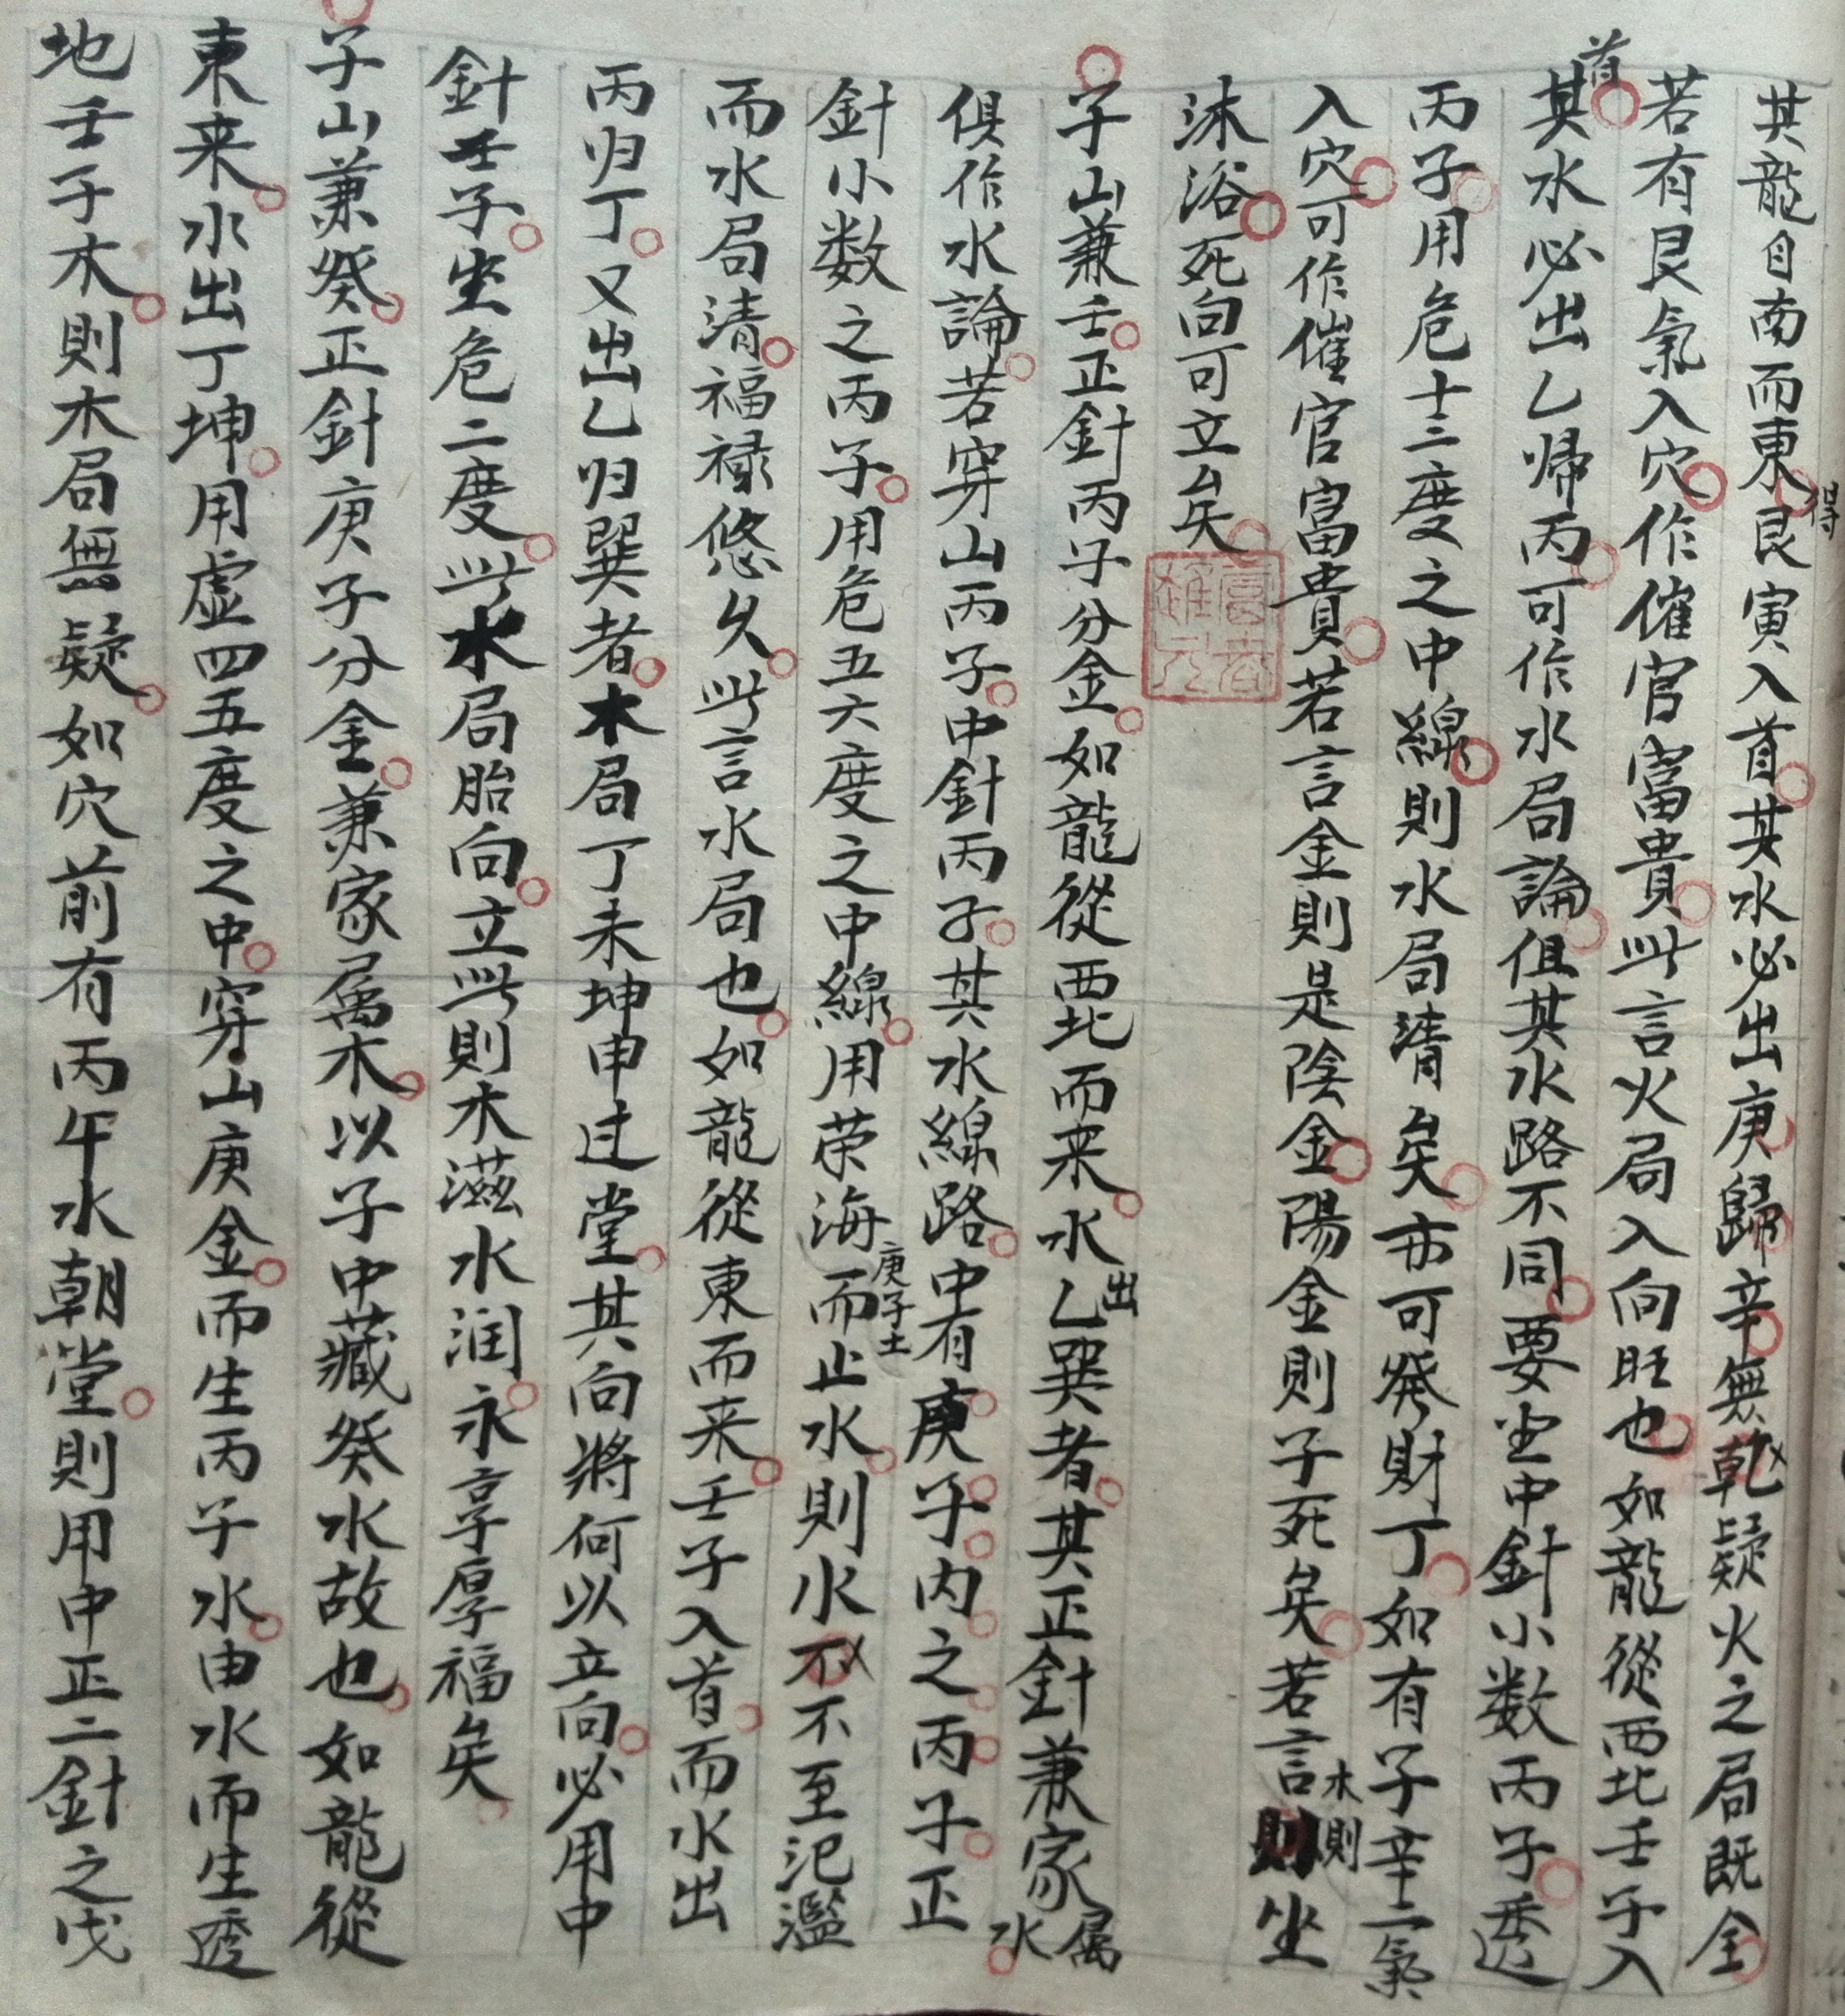 其龍自南而東得艮寅入首其水必出庚歸辛無乾疑火之局既全
若有艮氣入穴作催官富貴此言火局入向旺也如龍從西北壬子入
首其水必出乙帰丙可作水局論但其水路不同要坐中針小数丙子透
丙子用危十二度之中線則水局清矣亦可發財丁如有子辛二氣
入穴可作催官富貴若言金則是陰金陽金則子死矣若言木則坐
沐浴死向可立矣
子山兼壬正針丙子分金如龍從西北而来水出乙巽者其正針兼家属水
俱作水論若穿山丙子中針丙子其水線路中有庚子内之丙子正
針小数之丙子用危五六度之中線用荣海庚子土而止水則水不不至汜濫
而水局清福禄悠久此言水局也如龍從東而来壬子入首而水出
丙归丁又出乙归巽者木局丁未坤申过堂其向將何以立向必用中
針壬子坐危二度此水局胎向立此則木滋水润永享厚福矣
子山兼癸正針庚子分金兼家属木以子中藏癸水故也如龍從
東来水出丁坤用虚四五度之中穿山庚金而生丙子水由水而生透
地壬子木則木局無疑如穴前有丙午水朝堂則用中正二針之戊